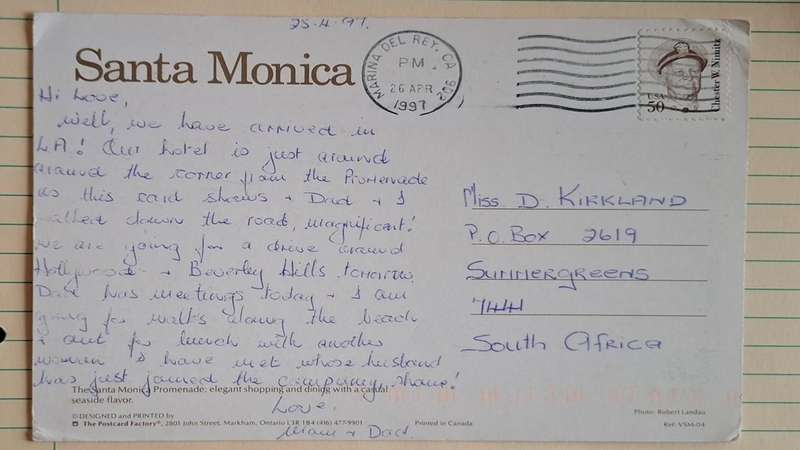 25.4.97.
Santa Monica
MARINA DEL REY, CA 902
PM
26 APR
1997
USA
50
Chester W. Nimitz
Hi Love,
Well, we have arrived in
LA! Our hotel is just around
around the corner from the Promenade
as this card shows + Dad + I
walked down the road, magnificent!
We are going for a drive around
Hollywood + Beverley Hills tomorrow.
Dad has meetings today + I am
going for walks along the beach
+ out for lunch with another
woman I have met whose husband
has just joined the company, shame!
Love,
Mum + Dad.
Miss. D. KIRKLAND
P.O. Box 2619
SUMMERGREENS
7441
South Africa
The Santa Monica Promenade: elegant shopping and dining with a casual
seaside flavor.
©DESIGNED and PRINTED by
The Postcard Factory®, 2801 John Street, Markham, Ontario L3R 1B4 (416) 477-9901
Printed in Canada
Photo: Robert Landau
Ref: VSM-04